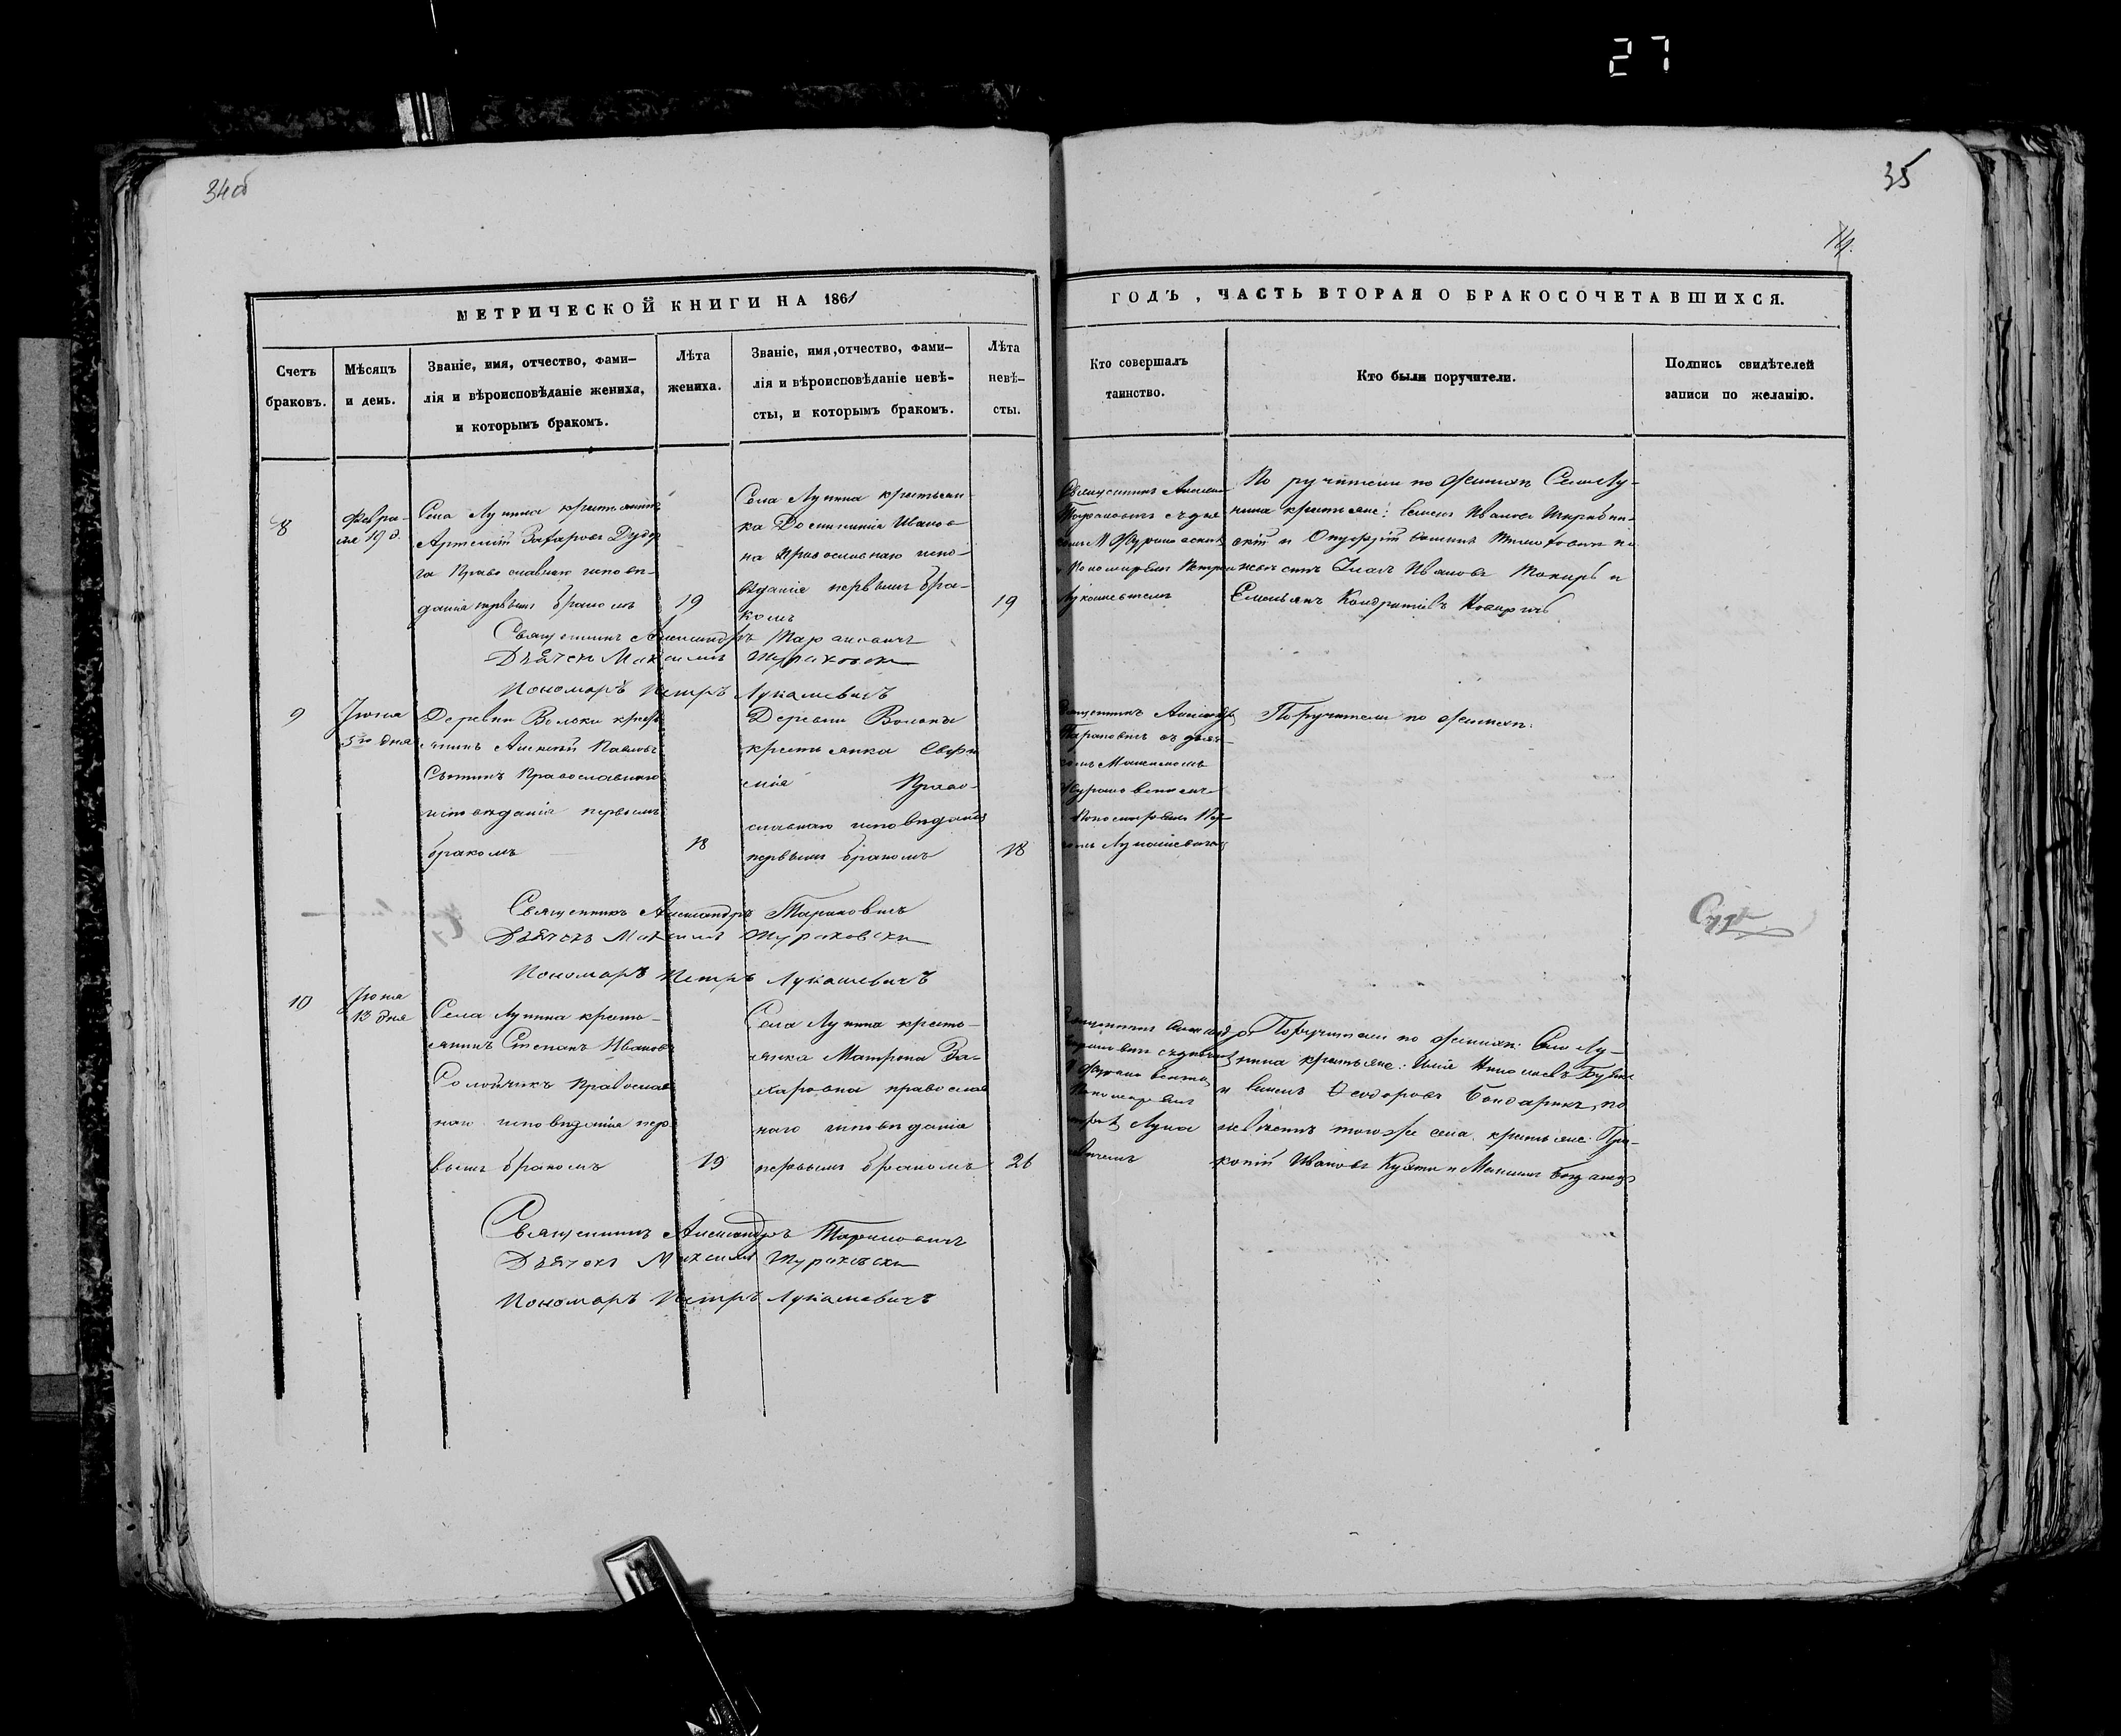 27
34об
35
14.
МЕТРИЧЕСКОЙ КНИГИ НА 1861
ГОДЪ, ЧАСТЬ ВТОРАЯ О БРАКОСОЧЕТАВШИХСЯ.
Счетъ
браковъ.
Мѣсяцъ
и день.
Званіе, имя, отчество, фами-
лія и вѣроисповѣданіе жениха,
и которымъ бракомъ.
Лѣта
жениха.
Званіе, имя, отчество, фами-
лія и вѣроисповѣданіе невѣ-
сты, и которымъ бракомъ.
Лѣта
невѣ-
сты.
Кто совершалъ
таинство.
Кто были поручители.
Подпись свидѣтелей
записи по желанію.
8
Февра-
ля 19 д.
Села Лунина крестьянинъ
Артемій Захаровъ
Православнаго исповѣ-
данія первымъ бракомъ
19
Села Лунина крестьян-
ка Домникия Иванов-
на Православнаго испо-
вѣданія первымъ бра-
комъ
19
Священникъ
Тарановичъ съ
и Пономаремъ Петромъ
Лукашевичемъ
По ручители по женихѣ Села Лу-
нина крестьяне: Семенъ Ивановъ
и по
невѣстѣ Ивановъ и
Емельянъ Кондратіевъ
Священникъ Александръ Тарановичъ
Дьячекъ Максимъ Жураковски
Пономарь Петръ Лукашевичъ
9
Іюня
5го дня
Деревни крестья-
нинъ Алексѣй Павловъ
Православнаго
исповѣданія первымъ
бракомъ
18
Деревни
крестьянка Евфи-
мія Право-
славнаго исповѣданія
первымъ бракомъ
18
Священникъ Александръ
Тарановичъ съ дьяч-
комъ Максимомъ
Жураковскимъ
и Пономаремъ Пет-
ромъ Лукашевичемъ
Поручители по женихѣ:
Священникъ Александръ Тарановичъ
Дьячекъ Максимъ Жураковски
Пономарь Петръ Лукашевичъ
10
Іюня
13 дня
Села Лунина кресть-
янинъ Степанъ Ивановъ
Православ-
наго исповѣданія пер-
вымъ бракомъ
19
Села Лунина кресть-
янка Матрона За-
харовна православ-
наго исповѣданія
первымъ бракомъ
21
Священникъ
Тарановичъ
Пономаремъ
Петромъ Лука-
шевичемъ
Поручители по женихѣ: Села Лу-
нина крестьяне: Илія Николаевъ
и Семенъ Ѳеодоровъ Бондарикъ, по
невѣстѣ тогоже села крестьяне: Про-
копій Ивановъ и Максимъ
Священникъ Александръ Тарановичъ
Дьячекъ Максимъ Жураковски
Пономарь Петръ Лукашевичъ